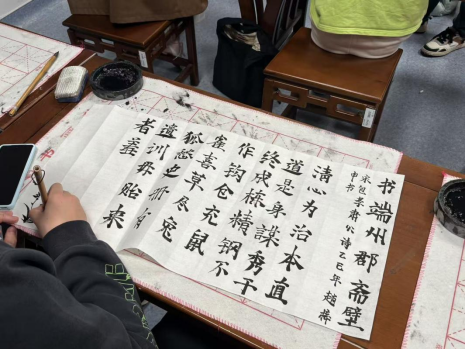 书端州郡斋壁
宋包孝肃公诗乙巳年赵
申书
清心为治本直
道是身谋秀干
终成栋精钢不
作钩仓充鼠
雀喜草尽兔
狐愁史册有
遗训毋贻来
者羞